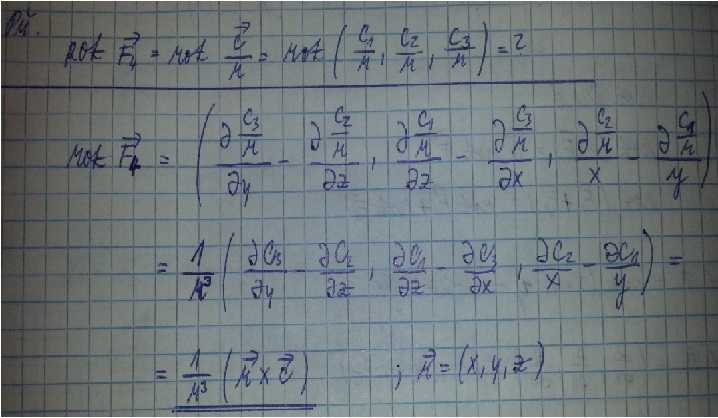 Př.
rot F⃗₄ = rot c⃗/r = rot ( c₁/r , c₂/r , c₃/r ) = ?
rot F⃗₄ = ( ∂ c₃/r / ∂y − ∂ c₂/r / ∂z , ∂ c₁/r / ∂z − ∂ c₃/r / ∂x , ∂ c₂/r / x − ∂ c₁/r / y )
= 1/r³ ( ∂c₃/∂y − ∂c₂/∂z , ∂c₁/∂z − ∂c₃/∂x , ∂c₂/x − ∂c₁/y ) =
= 1/r³ ( r⃗ × c⃗ ) ; r⃗ = (x, y, z)